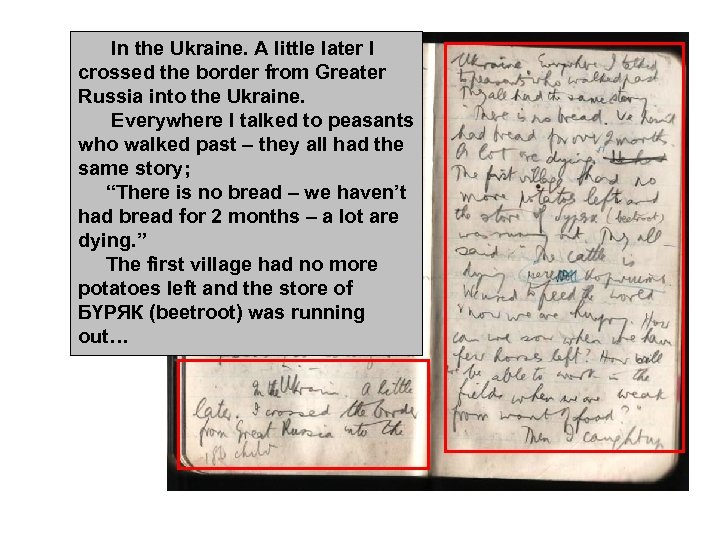 In the Ukraine. A little later I
crossed the border from Greater
Russia into the Ukraine.
Everywhere I talked to peasants
who walked past – they all had the
same story;
“There is no bread – we haven’t
had bread for 2 months – a lot are
dying.”
The first village had no more
potatoes left and the store of
БУРЯК (beetroot) was running
out…
In the Ukraine. A little
later. I crossed the border
from Great Russia into the
Ukraine. Everywhere I talked
to peasants who walked past
They all had the same story
"There is no bread. We haven't
had bread for over 2 months.
A lot are dying."
The first village had no
more potatoes left and
the store of буряк (beetroot)
was running out. They all
said "The cattle is
dying
We used to feed the world
now we are hungry. How
can we sow when we have
few horses left? How will
we be able to work in the
fields when we are weak
from want of food?"
Then I caught up